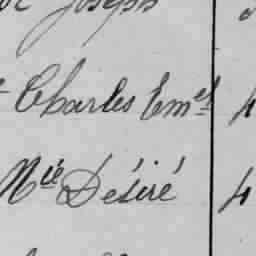 Joseph
Charles Em.el 4
Nie Désiré 4